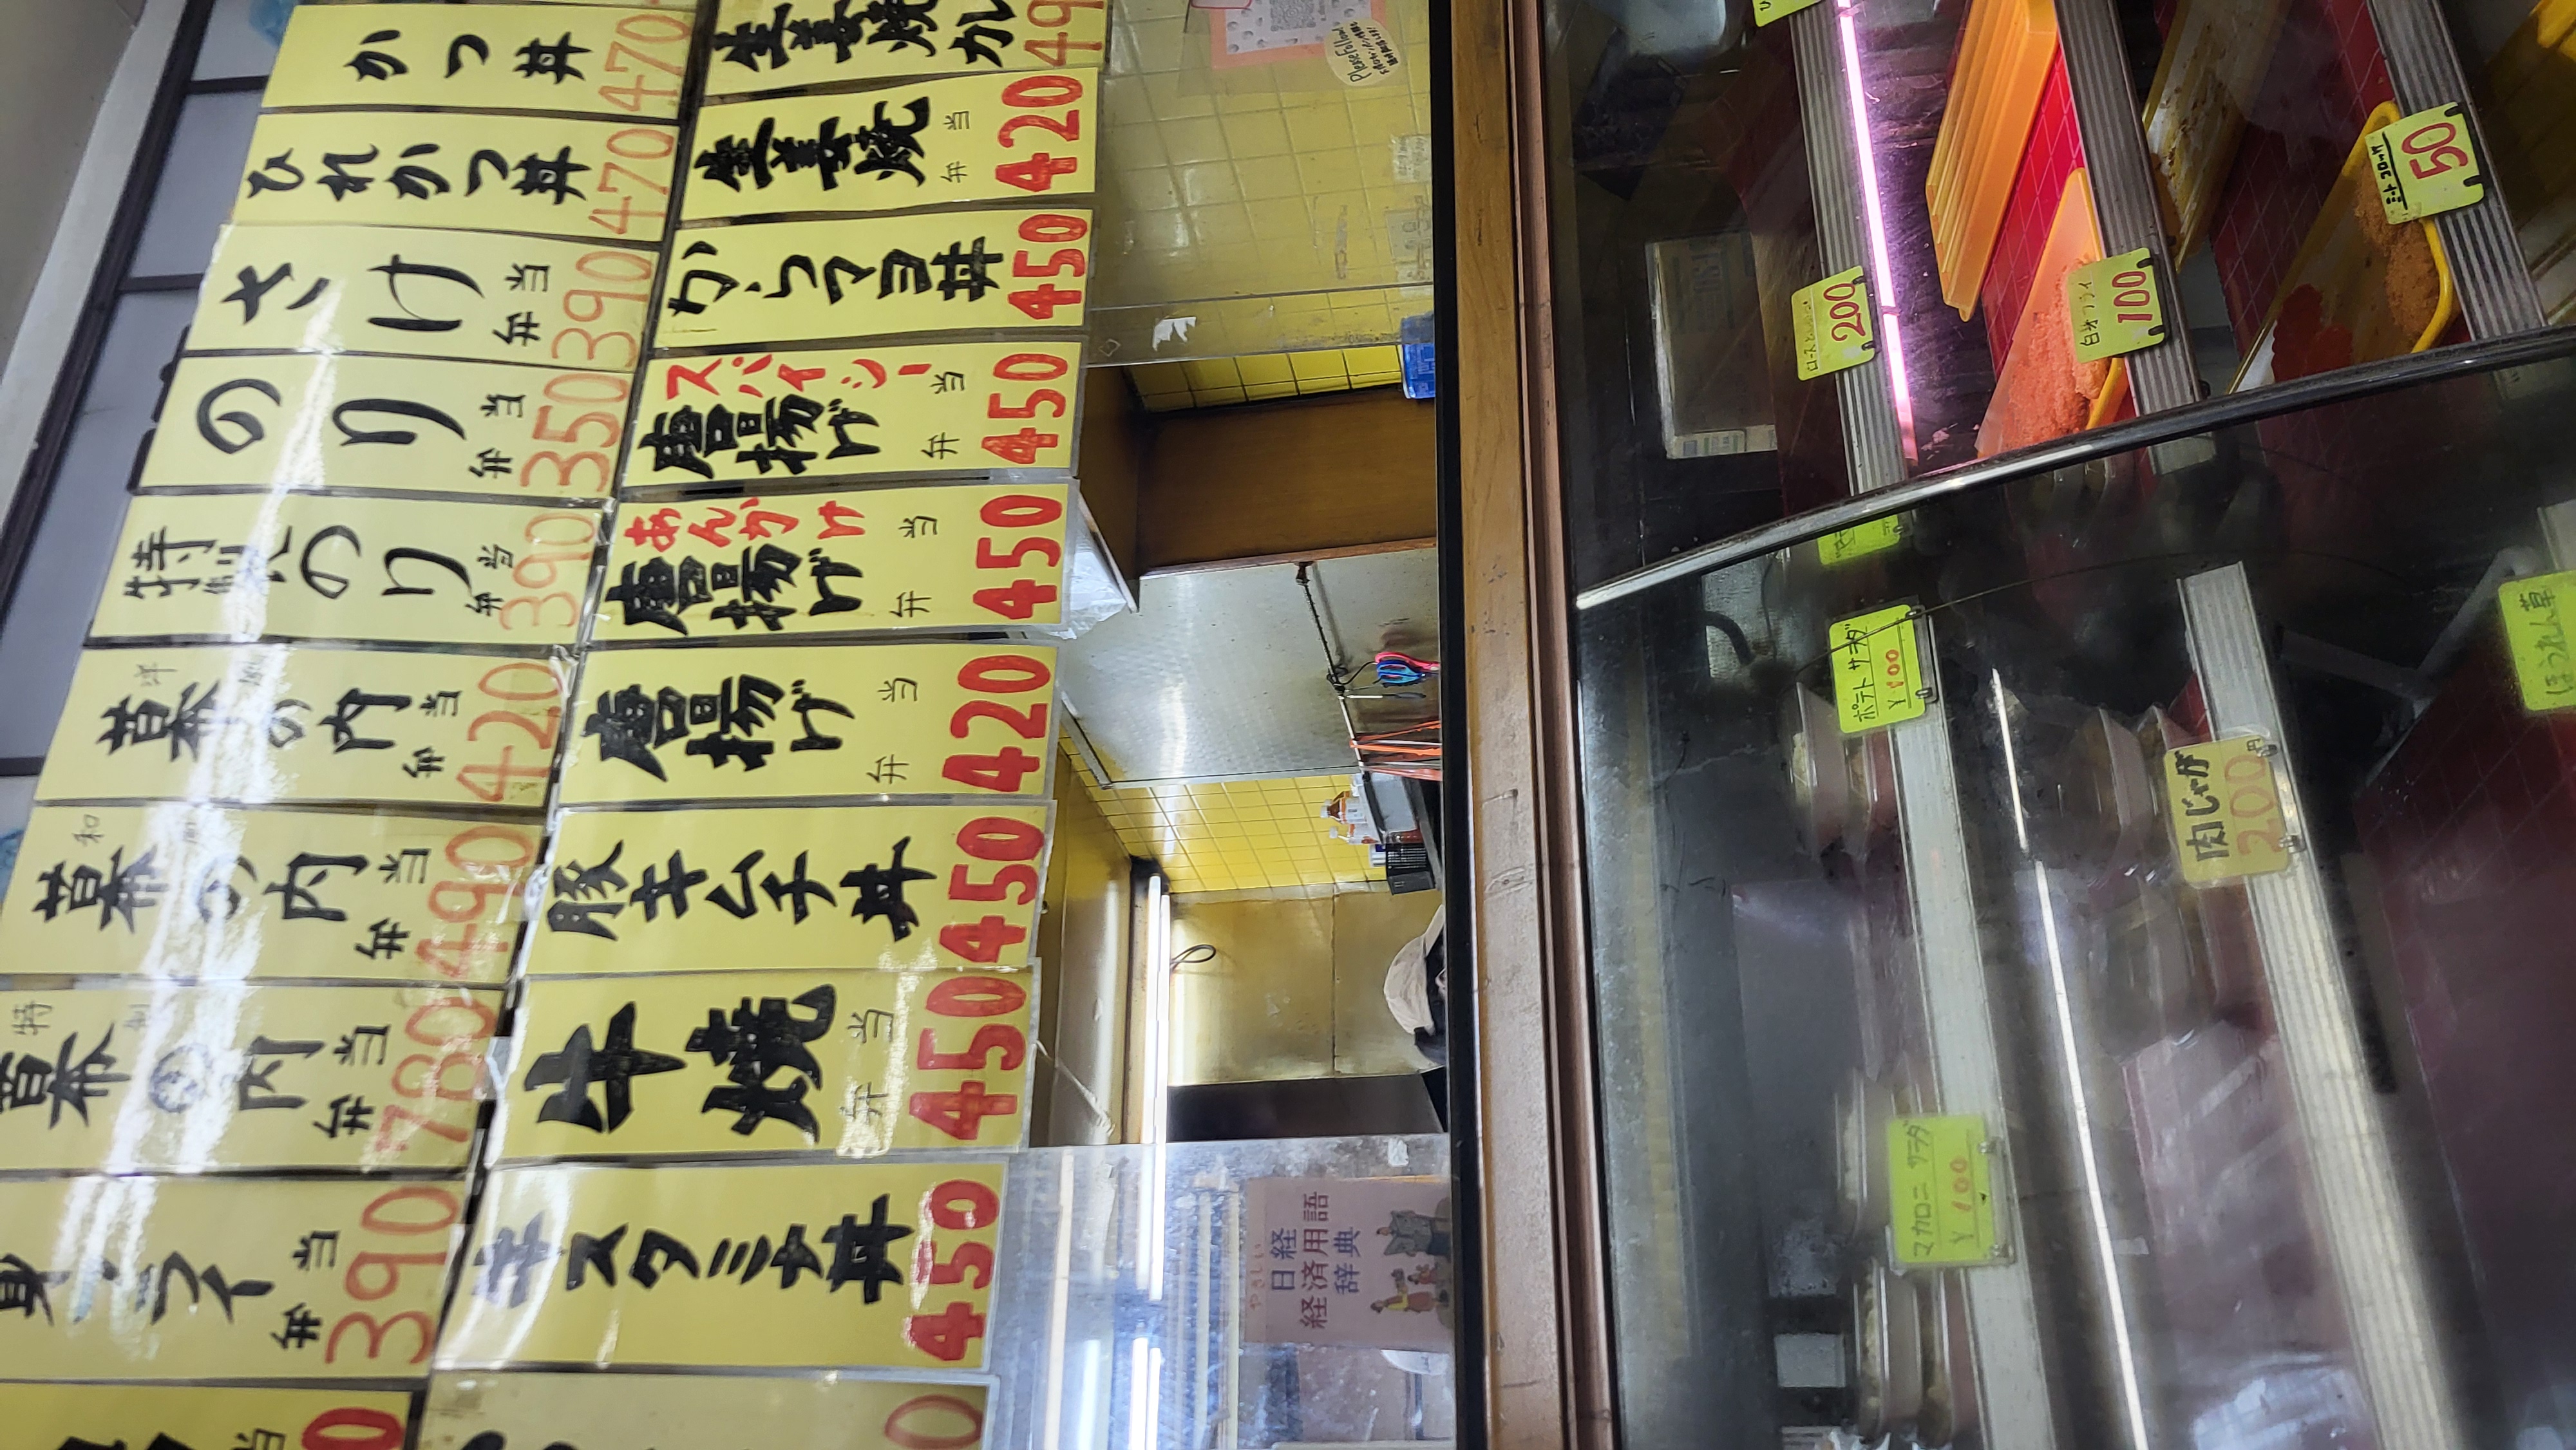 弁当
390
特製
幕の内
弁当
780
和風
幕の内
弁当
490
洋風
幕の内
弁当
420
特製のり
弁当
390
のり
弁当
350
さけ
弁当
390
ひれかつ丼
470
かつ丼
470
牛スタミナ丼
450
牛焼
弁当
450
豚キムチ丼
450
唐揚げ
弁当
420
あんかけ
唐揚げ
弁当
450
スパイシー
唐揚げ
弁当
450
からマヨ丼
450
生姜焼
弁当
420
生姜焼カル
やさしい
日経
経済用語
辞典
Please Follow!
マカロニ サラダ
¥100
ポテト サラダ
¥100
ロース
200
白身フライ
100
肉じゃが
200円
ミートコロッケ
50
ほうれん草